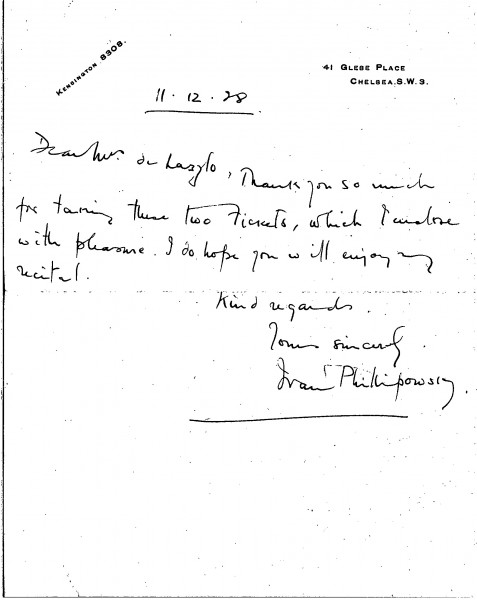 KENSINGTON 8308.
41 GLEBE PLACE
CHELSEA. S.W.3.
11 · 12 · 28
Dear Mrs. de Laszlo, Thank you so much
for taking these two tickets, which I enclose
with pleasure. I do hope you will enjoy my
recital.
Kind regards.
Yours sincerely.
Ivan Phillipowsky.